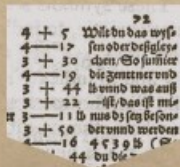 72
4 + 5 Wilt du das wys-
4 — 17 sen oder deßgley-
3 + 30 chen / So sumier
4 — 19 die zenttner vnd
3 + 44 lb vnnd was auß
3 + 22 — ist / das ist mi-
3 — 11 lb nus dz setz beson-
3 + 50 der vnnd werden
4 — 16 4539 lb (So
+ 44 du die